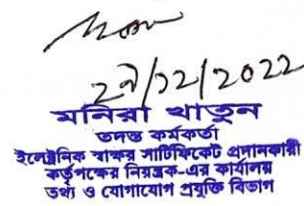 29/12/2022
মনিরা খাতুন
তদন্ত কর্মকর্তা
ইলেক্ট্রনিক স্বাক্ষর সার্টিফিকেট প্রদানকারী
কর্তৃপক্ষের নিয়ন্ত্রক-এর কার্যালয়
তথ্য ও যোগাযোগ প্রযুক্তি বিভাগ